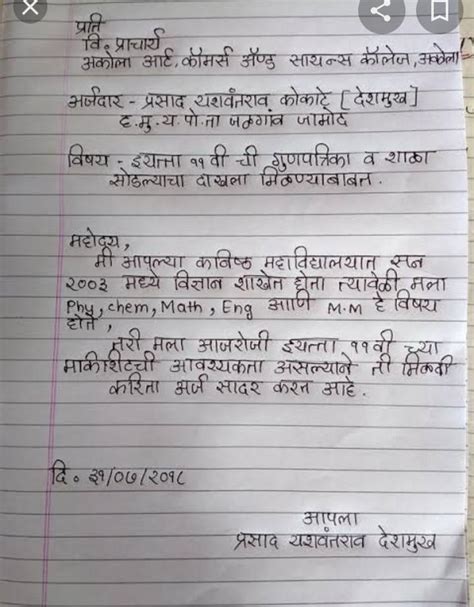 प्रति
वि. प्राचार्य
अकोला आर्ट, कॉमर्स अ‍ॅण्ड सायन्स कॉलेज, अकोला
अर्जदार - प्रसाद यशवंतराव कोकाटे [देशमुख]
ह.मु.य.पो.ता जळगांव जामोद
विषय - इयत्ता ११ वी ची गुणपत्रिका व शाळा
सोडल्याचा दाखला मिळण्याबाबत.
महोदय,
मी आपल्या कनिष्ठ महाविद्यालयात सन
२००३ मध्ये विज्ञान शाखेत होतो त्यावेळी मला
Phy, chem, Math, Eng आणि M.M हे विषय
होते,
तरी मला आजरोजी इयत्ता ११वी च्या
मार्कशिटची आवश्यकता असल्याने ती मिळवी
करिता अर्ज सादर करत आहे.
दि. ३१/०७/२०१८
आपला
प्रसाद यशवंतराव देशमुख